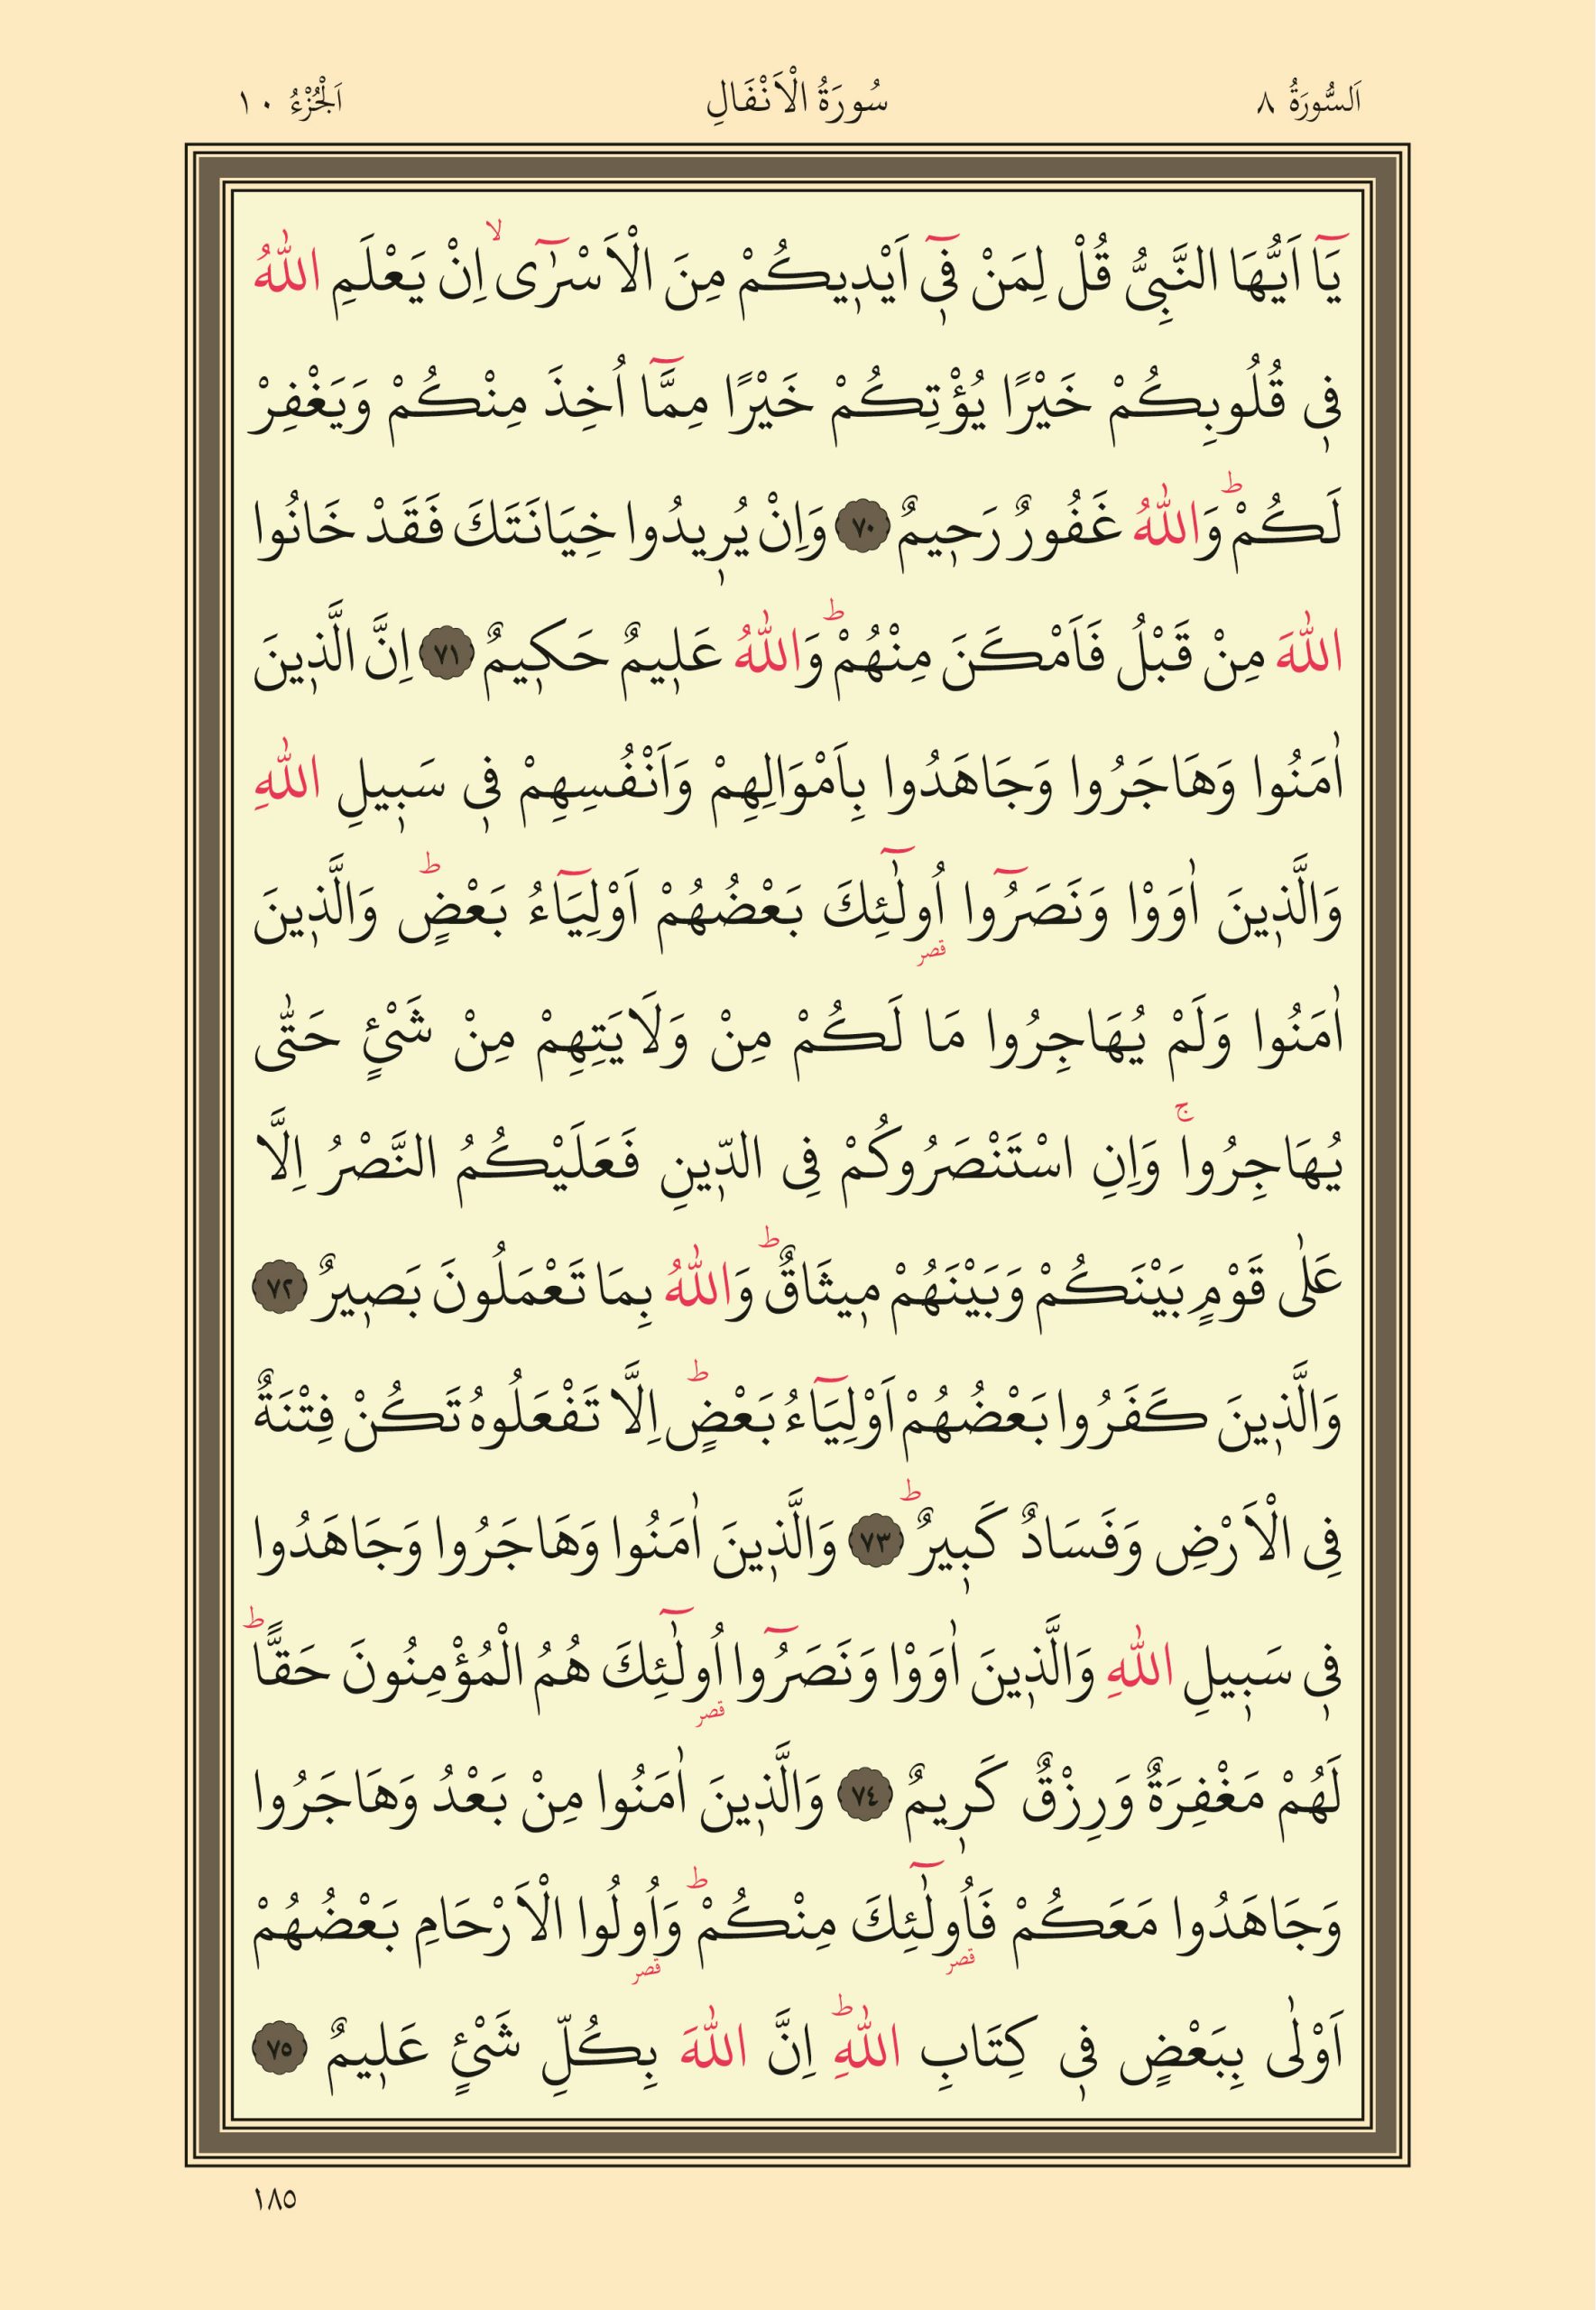 اَلسُّورَةُ ٨ سُورَةُ الْاَنْفَالِ اَلْجُزْءُ ١٠
يَٓا اَيُّهَا النَّبِىُّ قُلْ لِمَنْ ف۪ٓى اَيْد۪يكُمْ مِنَ الْاَسْرٰٓىۙ اِنْ يَعْلَمِ اللّٰهُ
ف۪ى قُلُوبِكُمْ خَيْرًا يُؤْتِكُمْ خَيْرًا مِمَّٓا اُخِذَ مِنْكُمْ وَيَغْفِرْ
لَكُمْۜ وَاللّٰهُ غَفُورٌ رَح۪يمٌ ﴿٧٠﴾ وَاِنْ يُر۪يدُوا خِيَانَتَكَ فَقَدْ خَانُوا
اللّٰهَ مِنْ قَبْلُ فَاَمْكَنَ مِنْهُمْۜ وَاللّٰهُ عَل۪يمٌ حَك۪يمٌ ﴿٧١﴾ اِنَّ الَّذ۪ينَ
اٰمَنُوا وَهَاجَرُوا وَجَاهَدُوا بِاَمْوَالِهِمْ وَاَنْفُسِهِمْ ف۪ى سَب۪يلِ اللّٰهِ
وَالَّذ۪ينَ اٰوَوْا وَنَصَرُٓوا اُولٰٓئِكَ بَعْضُهُمْ اَوْلِيَٓاءُ بَعْضٍۜ وَالَّذ۪ينَ
قصر
اٰمَنُوا وَلَمْ يُهَاجِرُوا مَا لَكُمْ مِنْ وَلَايَتِهِمْ مِنْ شَىْءٍ حَتّٰى
يُهَاجِرُواۚ وَاِنِ اسْتَنْصَرُوكُمْ فِى الدّ۪ينِ فَعَلَيْكُمُ النَّصْرُ اِلَّا
عَلٰى قَوْمٍ بَيْنَكُمْ وَبَيْنَهُمْ م۪يثَاقٌۜ وَاللّٰهُ بِمَا تَعْمَلُونَ بَص۪يرٌ ﴿٧٢﴾
وَالَّذ۪ينَ كَفَرُوا بَعْضُهُمْ اَوْلِيَٓاءُ بَعْضٍۜ اِلَّا تَفْعَلُوهُ تَكُنْ فِتْنَةٌ
فِى الْاَرْضِ وَفَسَادٌ كَب۪يرٌۜ ﴿٧٣﴾ وَالَّذ۪ينَ اٰمَنُوا وَهَاجَرُوا وَجَاهَدُوا
ف۪ى سَب۪يلِ اللّٰهِ وَالَّذ۪ينَ اٰوَوْا وَنَصَرُٓوا اُولٰٓئِكَ هُمُ الْمُؤْمِنُونَ حَقًّاۜ
قصر
لَهُمْ مَغْفِرَةٌ وَرِزْقٌ كَر۪يمٌ ﴿٧٤﴾ وَالَّذ۪ينَ اٰمَنُوا مِنْ بَعْدُ وَهَاجَرُوا
وَجَاهَدُوا مَعَكُمْ فَاُولٰٓئِكَ مِنْكُمْۜ وَاُولُوا الْاَرْحَامِ بَعْضُهُمْ
قصر قصر
اَوْلٰى بِبَعْضٍ ف۪ى كِتَابِ اللّٰهِۜ اِنَّ اللّٰهَ بِكُلِّ شَىْءٍ عَل۪يمٌ ﴿٧٥﴾
١٨٥